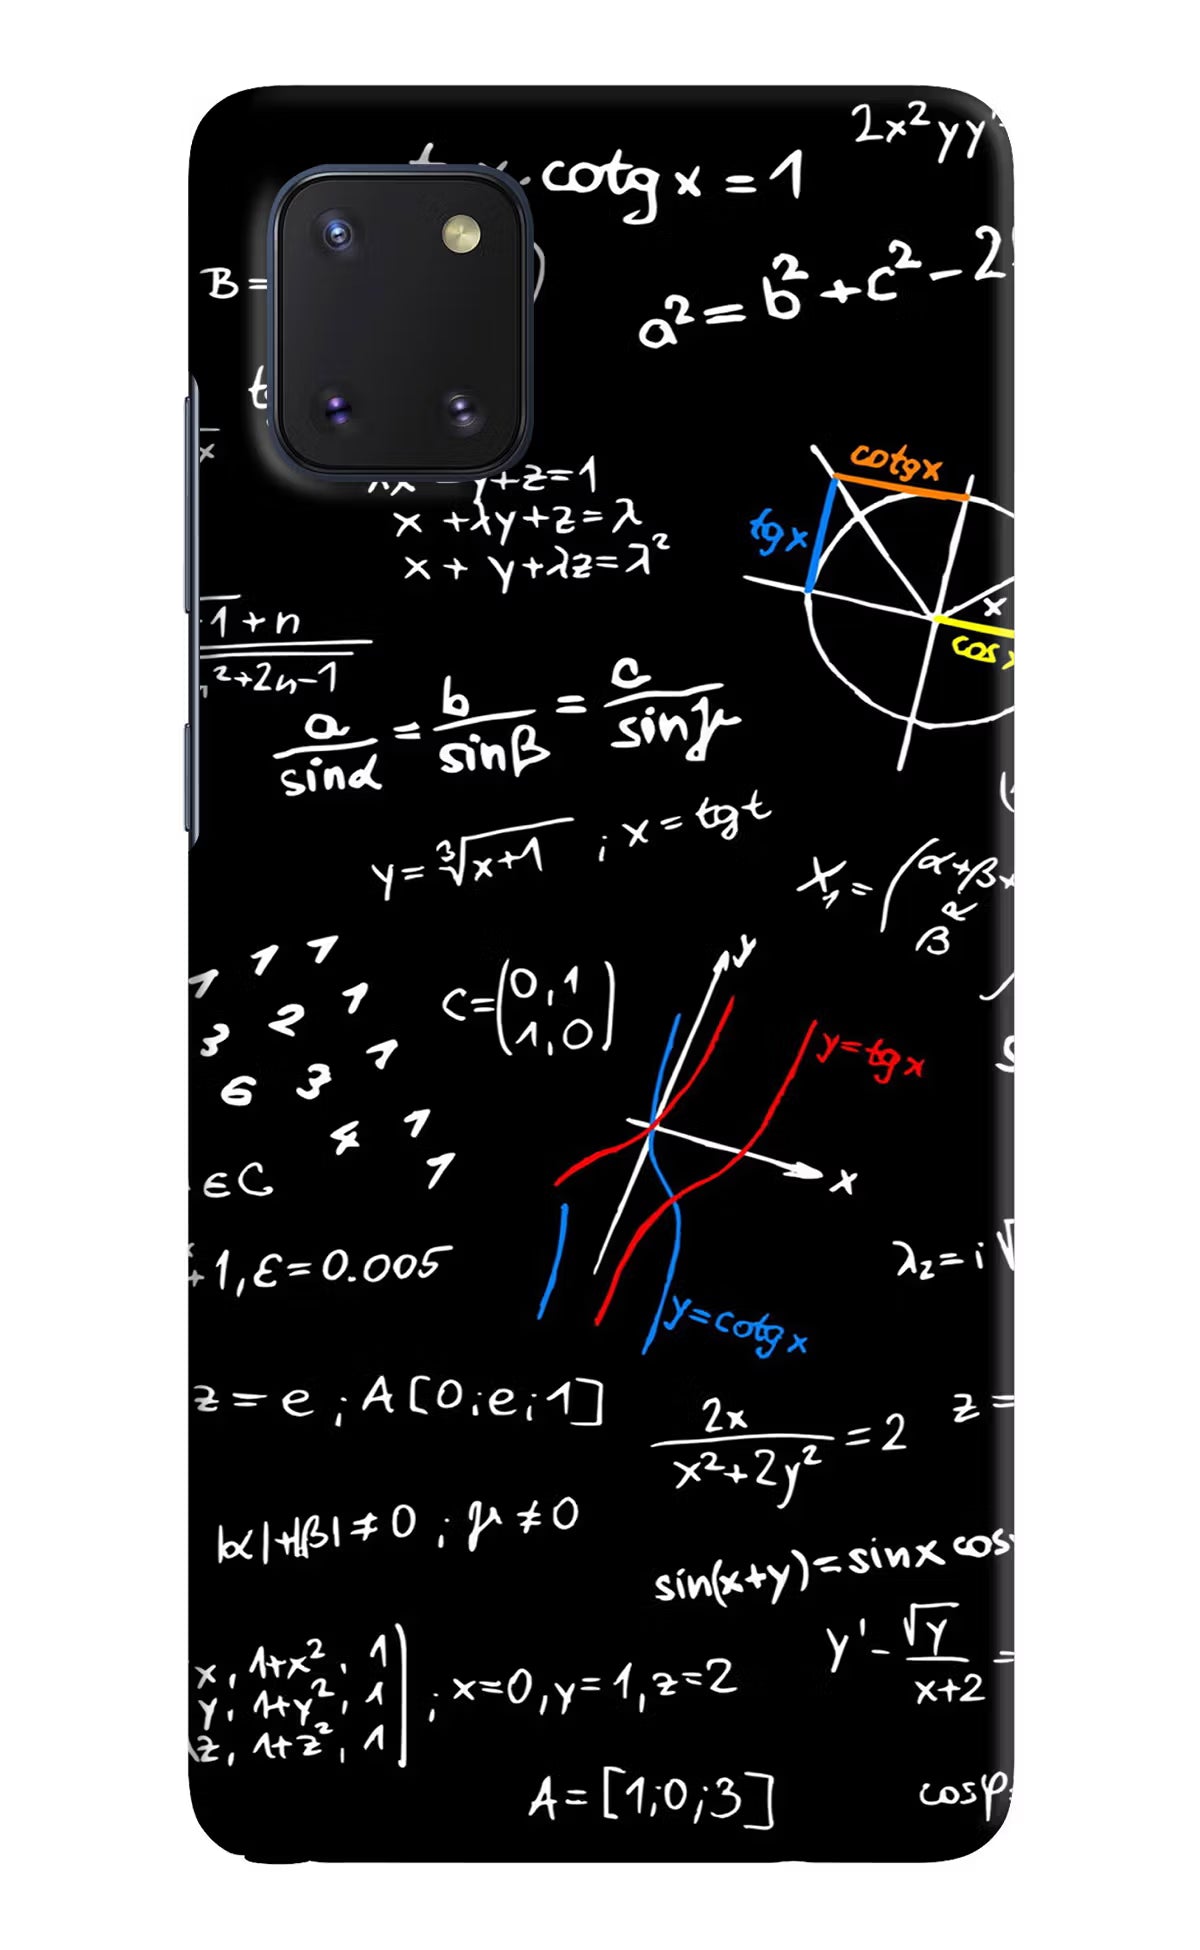 2x²yy'
cotg x = 1
B =
a² = b² + c² - 2
y+z=1
x +λy+z=λ
x + y+λz=λ²
cotgx
tgx
x
cos
1+n
²+2n-1
a/sinα = b/sinβ = c/sinγ
y = ∛x+1 ; x = tgt
X₁ = (α+β+
β
1 1 1
3 2 1
6 3 1
4 1
1
C=(0,1
1,0)
y
y=tgx
x
y=cotgx
∈C
+1, ε=0.005
λ₂=i√
z = e ; A[0;e;1]
2x/x²+2y² = 2
z =
|α|+|β|≠0 ; μ≠0
sin(x+y)=sinx cos
y' - √y/x+2 =
x, 1+x², 1
y, 1+y², 1
z, 1+z², 1
; x=0, y=1, z=2
A=[1;0;3]
cosφ